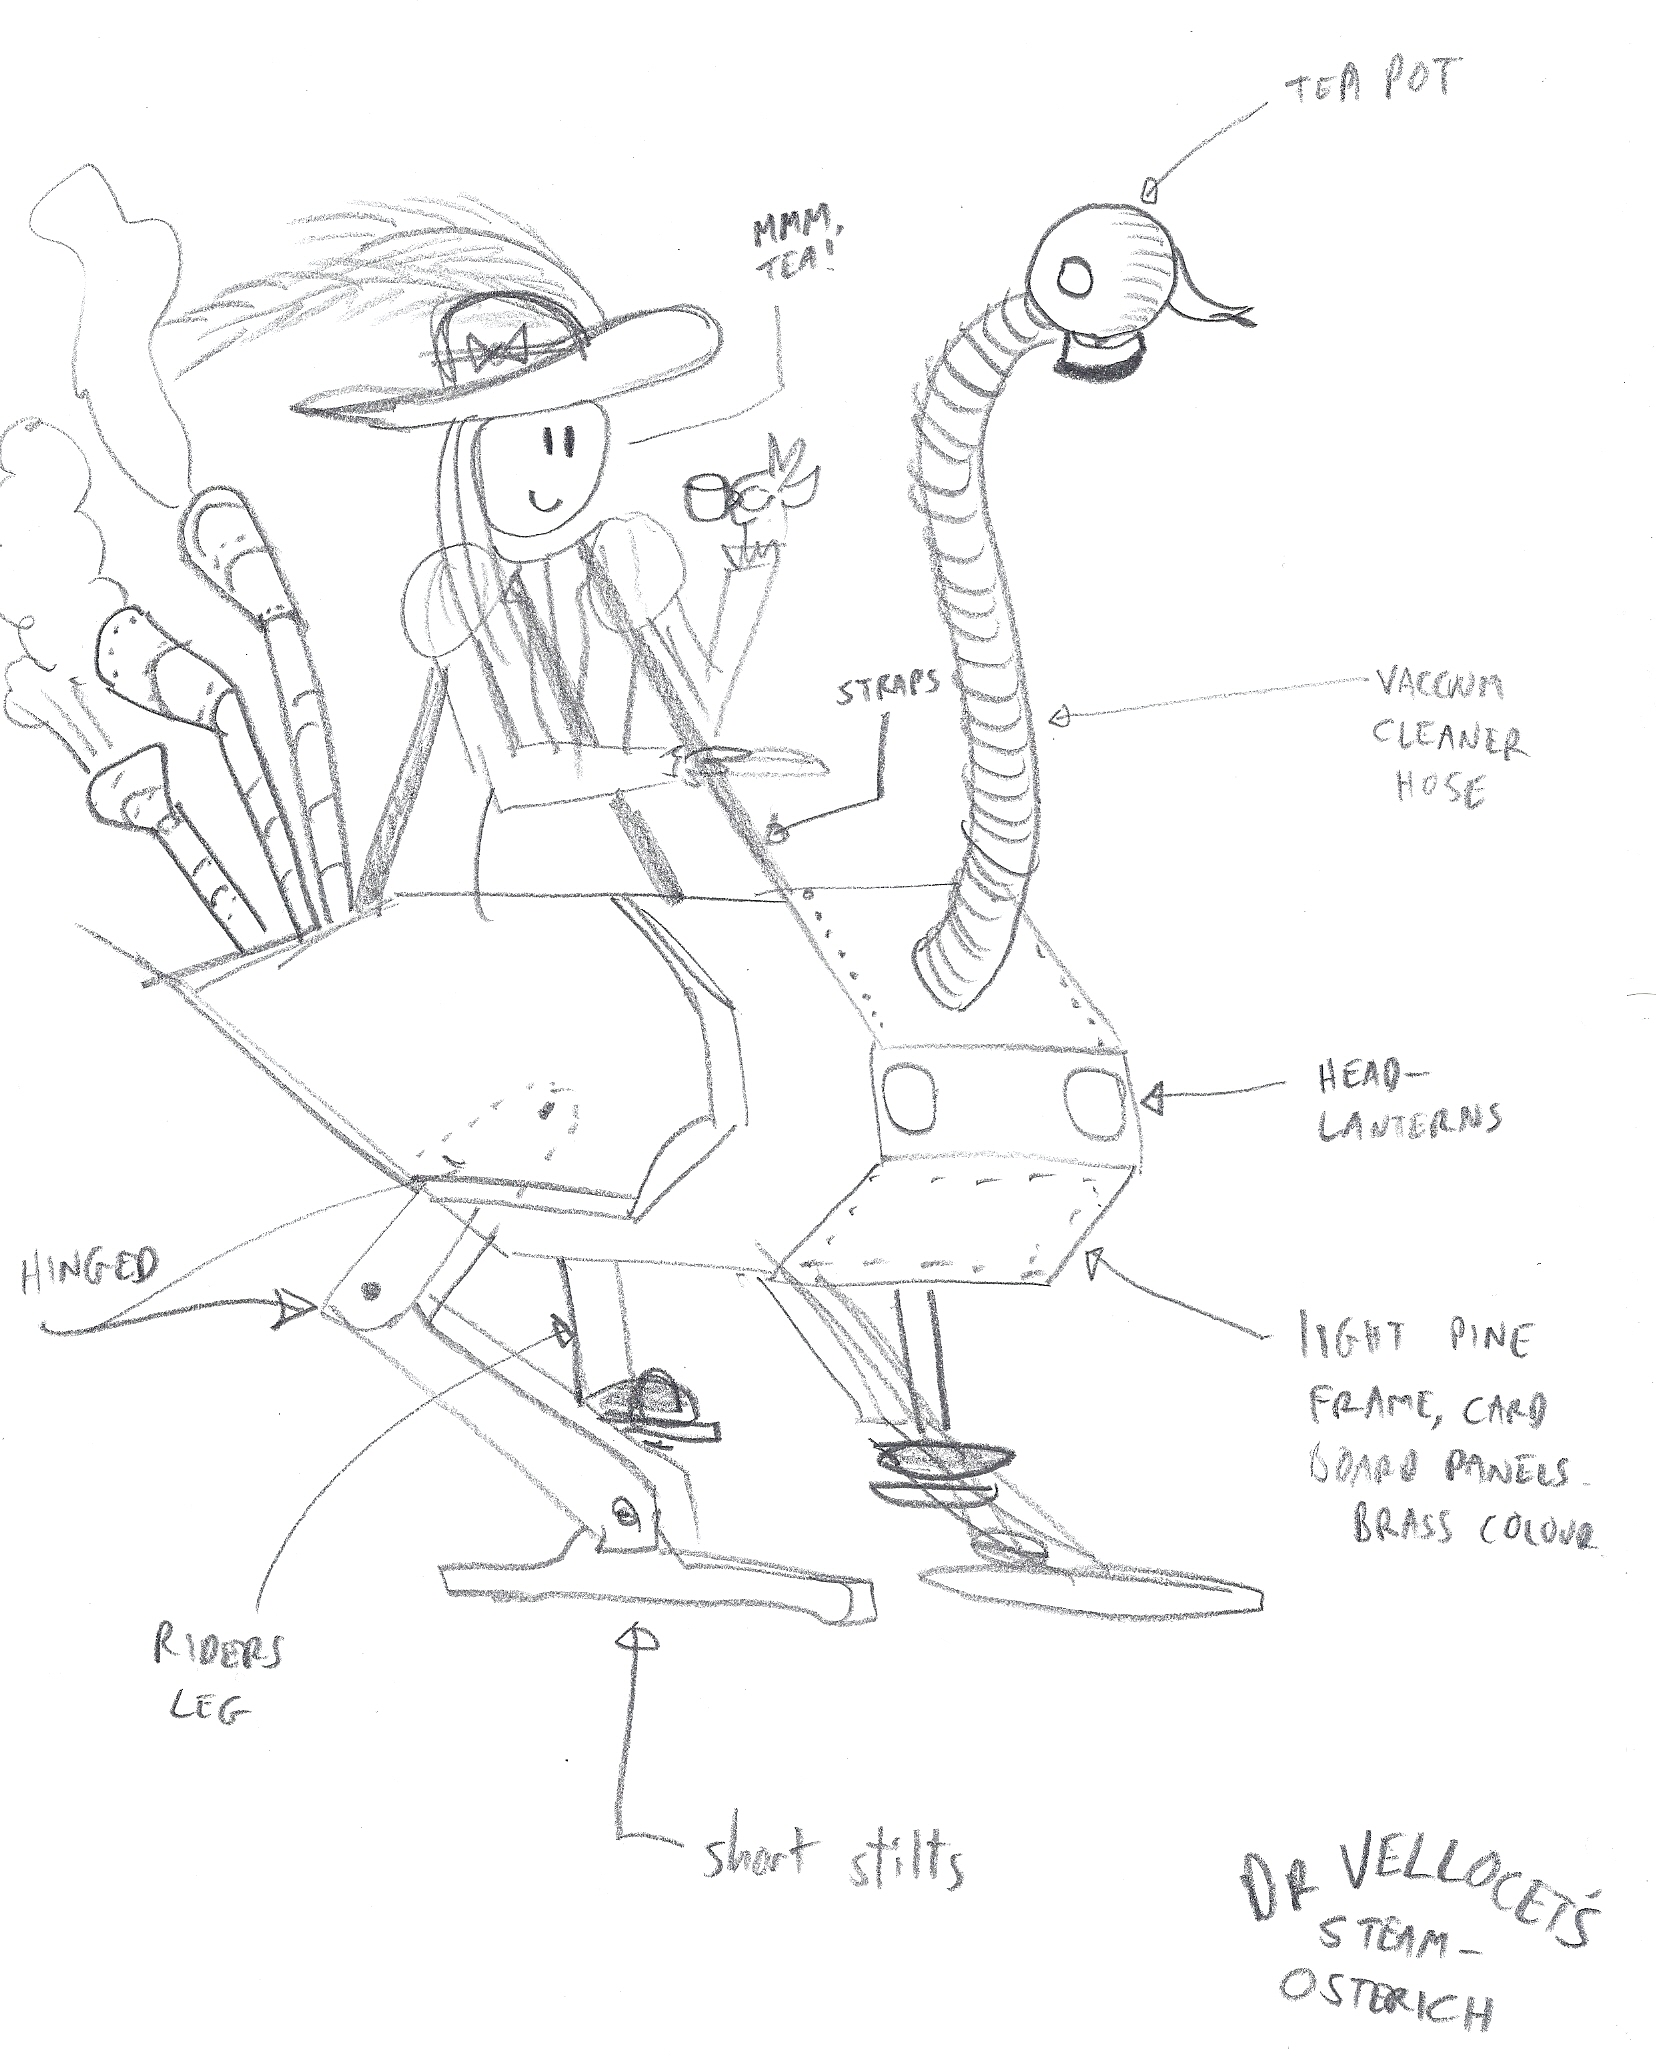 TEA POT
MMM,
TEA!
STRAPS
VACCUUM
CLEANER
HOSE
HEAD-
LANTERNS
HINGED
LIGHT PINE
FRAME, CARD
BOARD PANELS-
BRASS COLOUR
RIDERS
LEG
short stilts
DR VELLOCET'S
STEAM-
OSTERICH